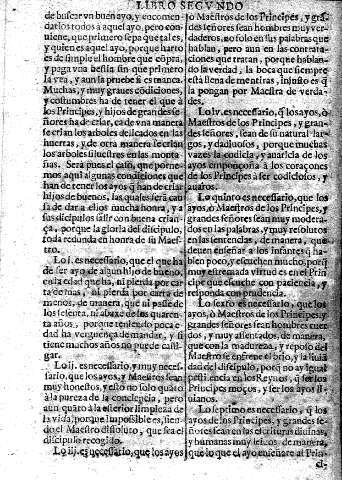 LIBRO SEGVNDO
de buscar vn buen ayo, y encomen
darlos todos a aquel ayo, pero con
uiene, que primero sepa que tal es,
y quien es aquel ayo, porque harto
es de simple el hombre que cõpra,
y paga vna bestia sin que primero
la vea, y aun la prueue si es manca.
Muchas, y muy graues cõdiciones,
y costumbres ha de tener el que à
los Principes, y hijos de grandes se-
ñores ha de criar, ca de vna manera
se crian los arboles delicados en las
huertas, y de otra manera se criàn
los arboles siluestres en las monta-
ñas. Será pues el caso, que porne-
mos aqui algunas condiciones que
han de tener los ayos q̃ han de criar
hijos de buenos, las quales será cau
sa de dar a ellos mucha honra, y a
sus discipulos salir con buena crian-
ça, porque la gloria del discipulo,
toda redunda en honra de su Maes-
tro.
Lo j. es necessario, que el que ha
de ser ayo de algun hijo de bueno,
en la edad que ha, ni pierda por car
ta de mas, ni pierda por carta de
menos, de manera, que ni passe de
los sesenta, ni abaxe de los quaren-
ta años, porque teniendo poca e-
dad ha verguença de mandar, y si
tiene muchos años no puede casti-
gar.
Lo ij. es necessario, y muy neces-
sario, que los ayos, y Maestros sean
muy honestos, y esto no solo quãto
à la pureza de la conciencia, pero
aun quãto à la esterior limpieza de
la vida, porque impossible es, tien-
do el Maestro dissoluto, que sea el
discipulo recogido.
Lo iij. es necessario, que los ayos
ò Maestros de los Principes, y grã-
des señores sean hombres muy ver-
daderos, no solo en sus palabras que
hablan, pero aun en las contrata-
ciones que tratan, porque hablan-
do verdad, la boca que siempre
està llena de mentiras, injusto es q̃
la pongan por Maestra de verda-
des.
Lo iv. es necessario, q̃ los ayos, ò
Maestros de los Principes, y gran-
des señores, sean de su natural lar-
gos, y dadiuosos, porque muchas
vezes la codicia, y auaricia de los
ayos emponçoña à los coraçones
de los Principes à ser codiciosos, y
auaros.
Lo quinto es necessario, que los
ayos, ò Maestros de los Principes, y
grandes señores sean muy modera-
dos en las palabras, y muy resolutos
en las sentencias, de manera, que
deuen enseñar a los Infantes q̃ ha-
blen poco, y escuchen mucho, porq̃
muy estremada virtud es en el Prin
cipe que escuche con paciencia, y
responda con prudencia.
Lo sexto es necessario, que los
ayos, ò Maestros de los Principes, y
grandes señores sean hombres cuer
dos, y muy assentados, de manera,
que con la madurez, y reposo del
Maestro se enfrene el brio, y la liuiã
dad del discipulo, porq̃ no ay igual
pestilencia en los Reynos, q̃ ser los
Principes moços, y ser los ayos li-
uianos.
Lo septimo es necessario, q̃ los
ayos de los Principes, y grandes se-
ñores sean en las escrituras diuinas,
y humanas muy leidos, de manera,
que lo que el ayo enseñare al Prin-
ci-